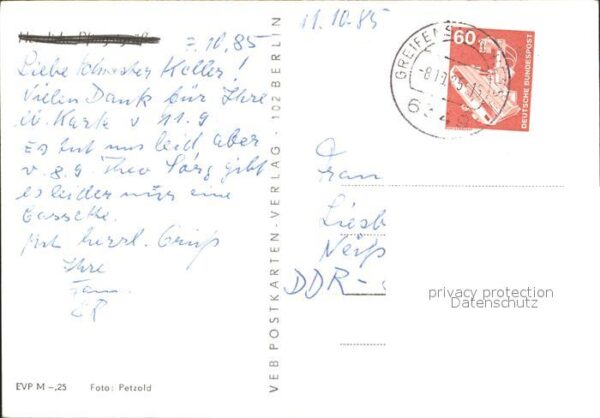 7.10.85
Liebe Schwester Keller!
Vielen Dank für Ihre
Karte v 11.9
Es tut uns leid aber
v. Theo Sorg gibt
es leider nur eine
Cassette.
Mit herzl. Gruß
Ihre
Fam.
VEB POSTKARTEN-VERLAG · 102 BERLIN
11.10.85
GREIFENS
-8.10.85-15
634
60
DEUTSCHE BUNDESPOST
Frau
Liesb
Neiß
DDR-
privacy protection
Datenschutz
EVP M -,25 Foto: Petzold